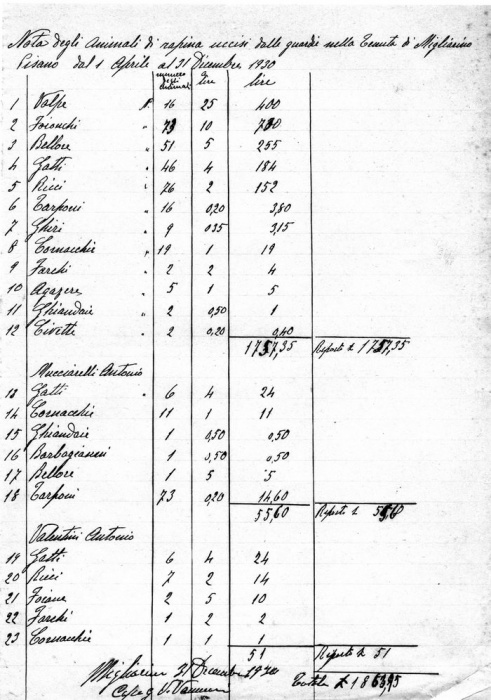 Nota degli Animali di rapina uccisi dalle guardie nella Tenuta di Migliarino
Pisano dal 1 Aprile al 31 Dicembre 1930
numero degli animali a lire lire
1 Volpe N. 16 25 400
2 Foionchi " 73 10 730
3 Bellore " 51 5 255
4 Gatti " 46 4 184
5 Ricci " 76 2 152
6 Tarponi " 16 0,20 3,80
7 Ghiri " 9 035 3,15
8 Cornacchie " 19 1 19
9 Farchi " 2 2 4
10 Agazere " 5 1 5
11 Ghiandaie " 2 0,50 1
12 Civette " 2 0,20 0,40
1757,35 Riporto £ 1757,35
Mucciarelli Antonio
13 Gatti " 6 4 24
14 Cornacchie 11 1 11
15 Ghiandaie 1 0,50 0,50
16 Barbagianni 1 0,50 0,50
17 Bellore 1 5 5
18 Tarponi 73 0,20 14,60
55,60 Riporto £ 55,60
Valentini Antonio
19 Gatti 6 4 24
20 Ricci 7 2 14
21 Foiane 2 5 10
22 Farchi 1 2 2
23 Cornacchie 1 1 1
51 Riporto £ 51
Migliarino 31 Dicembre 1930
Totale £ 1863,95